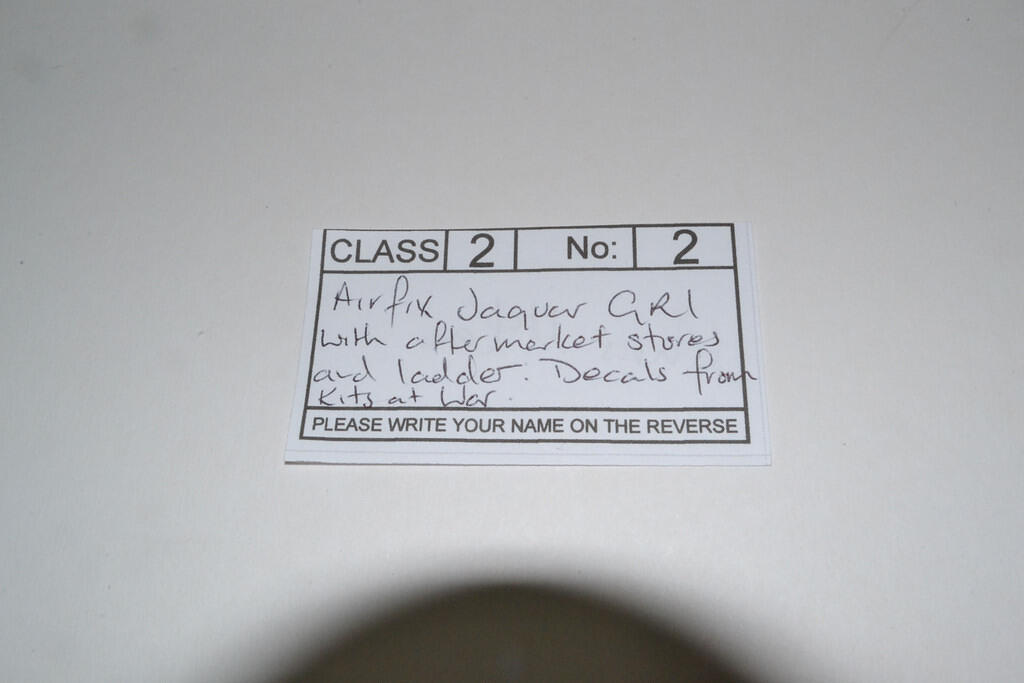 CLASS 2 No: 2
Airfix Jaguar GR1
with aftermarket stores
and ladder. Decals from
Kits at War.
PLEASE WRITE YOUR NAME ON THE REVERSE